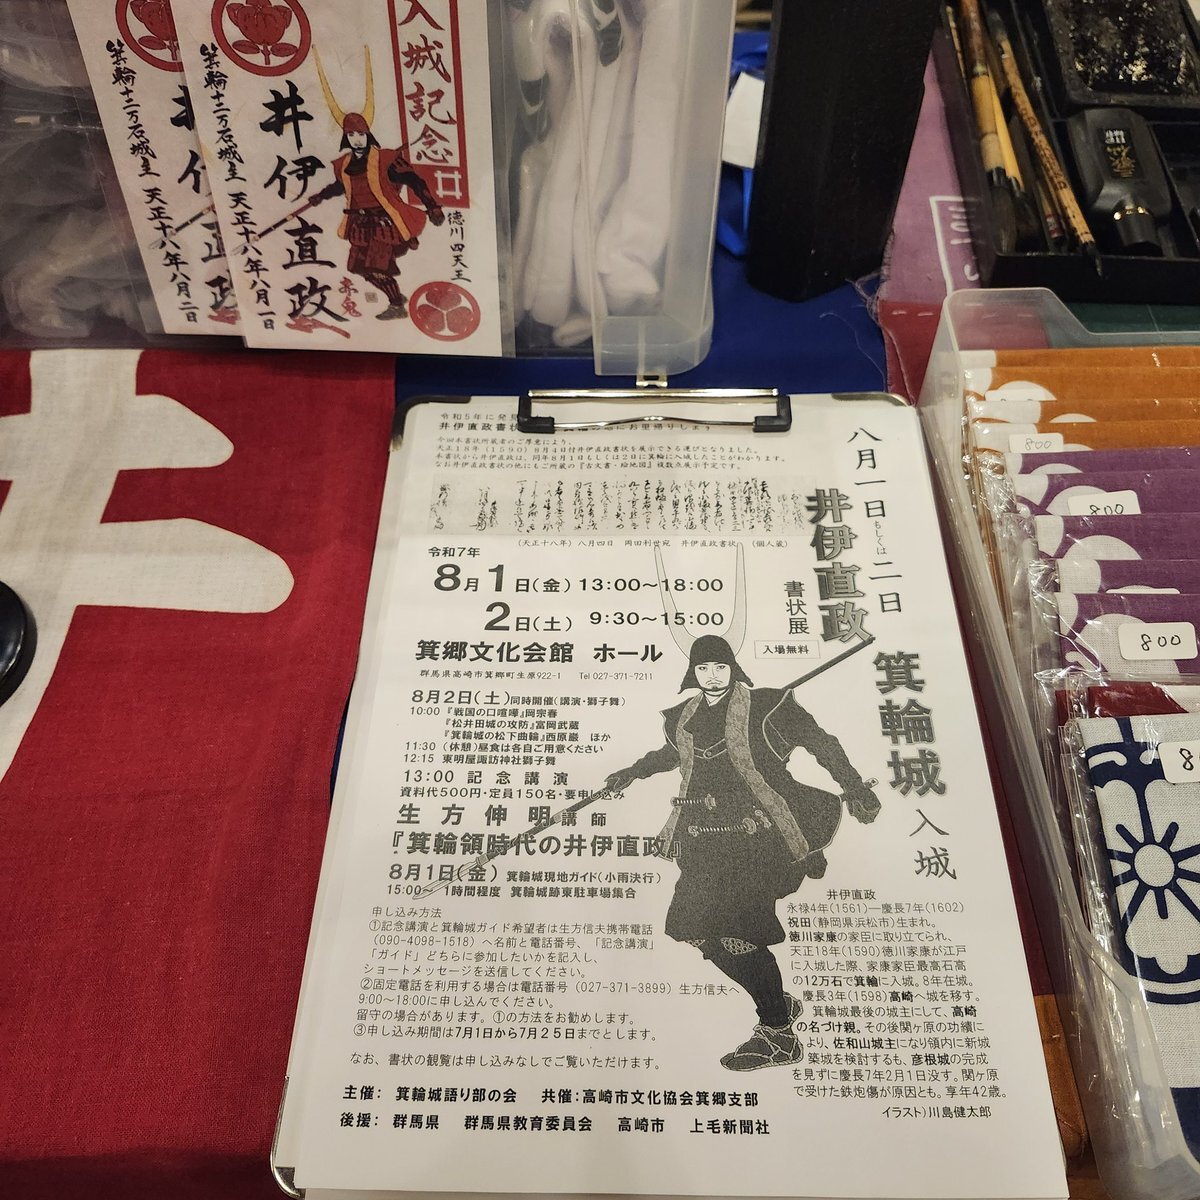 入城記念
井
井伊直政
箕輪十二万石城主 天正十八年八月一日
徳川四天王
赤鬼
箕輪十二万石城主 天正十八年八月二日
令和5年に発
井伊直政書状
にお里帰りしま
今回本書状所蔵者のご厚意により、
天正18年(1590)8月4日付井伊直政書状を展示できる運びとなりました。
本書状から井伊直政は、同年8月1日もしくは2日に箕輪に入城したことがわかります。
なお井伊直政書状の他にもご所蔵の『古文書・絵地図』複数点展示予定です。
(天正十八年)八月四日 岡田利世宛 井伊直政書状 (個人蔵)
八月一日もしくは二日
井伊直政
箕輪城
入城
書状展
入場無料
令和7年
8月1日(金) 13:00~18:00
2日(土) 9:30~15:00
箕郷文化会館 ホール
群馬県高崎市箕郷町生原922-1 Tel 027-371-7211
8月2日(土)同時開催(講演・獅子舞)
10:00『戦国の口喧嘩』岡宗春
『松井田城の攻防』富岡武蔵
『箕輪城の松下曲輪』西原巌 ほか
11:30 (休憩)昼食は各自ご用意ください
12:15 東明屋諏訪神社獅子舞
13:00 記念講演
資料代500円・定員150名・要申し込み
生方伸明講師
『箕輪領時代の井伊直政』
8月1日(金) 箕輪城現地ガイド(小雨決行)
15:00~ 1時間程度 箕輪城跡東駐車場集合
申し込み方法
①記念講演と箕輪城ガイド希望者は生方信夫携帯電話
(090-4098-1518)へ名前と電話番号、「記念講演」
「ガイド」どちらに参加したいかを記入し、
ショートメッセージを送信してください。
②固定電話を利用する場合は電話番号(027-371-3899)生方信夫へ
9:00~18:00に申し込んでください。
留守の場合があります。①の方法をお勧めします。
③申し込み期間は7月1日から7月25日までとします。
なお、書状の観覧は申し込みなしでご覧いただけます。
井伊直政
永禄4年(1561)―慶長7年(1602)
祝田(静岡県浜松市)生まれ。
徳川家康の家臣に取り立てられ、
天正18年(1590)徳川家康が江戸
に入城した際、家康家臣最高石高
の12万石で箕輪に入城。8年在城。
慶長3年(1598)高崎へ城を移す。
箕輪城最後の城主にして、高崎
の名づけ親。その後関ヶ原の功績に
より、佐和山城主になり領内に新城
築城を検討するも、彦根城の完成
を見ずに慶長7年2月1日没。関ヶ原
で受けた鉄炮傷が原因とも。享年42歳。
イラスト)川島健太郎
主催: 箕輪城語り部の会 共催:高崎市文化協会箕郷支部
後援: 群馬県 群馬県教育委員会 高崎市 上毛新聞社
800
800
800